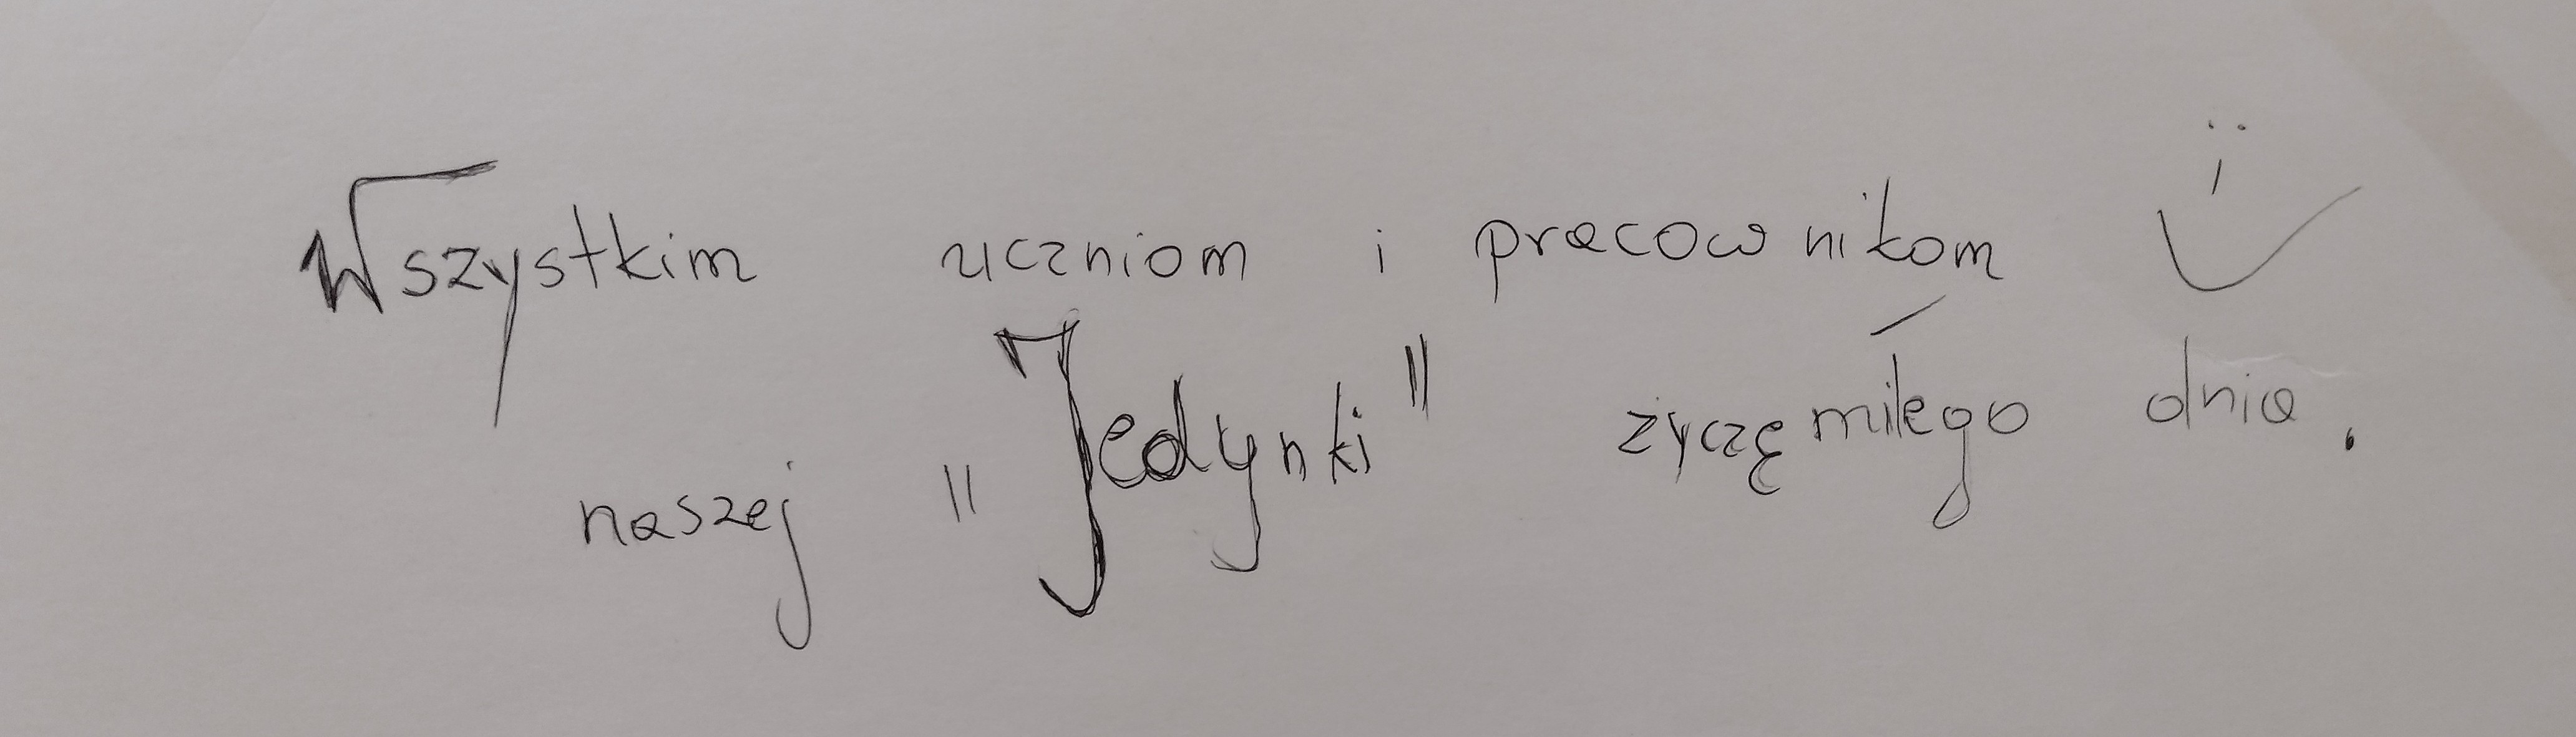 Wszystkim uczniom i pracownikom
naszej "Jedynki" życzę miłego dnia.